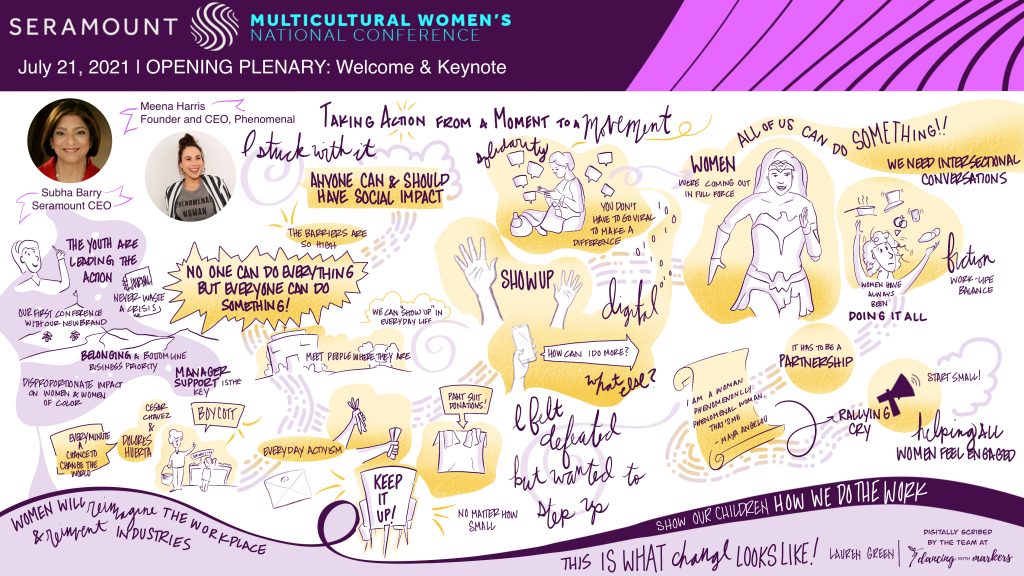 SERAMOUNT
MULTICULTURAL WOMEN'S
NATIONAL CONFERENCE
July 21, 2021 | OPENING PLENARY: Welcome & Keynote
Meena Harris
Founder and CEO, Phenomenal
PHENOMENAL
WOMAN
Subha Barry
Seramount CEO
TAKING ACTION FROM A MOMENT TO A MOVEMENT
I stuck with it
ANYONE CAN & SHOULD
HAVE SOCIAL IMPACT
THE BARRIERS ARE
SO HIGH
THE YOUTH ARE
LEADING THE
ACTION
NEVER WASTE
A CRISIS
OUR FIRST CONFERENCE
WITH OUR NEW BRAND
BELONGING A BOTTOM LINE
BUSINESS PRIORITY
DISPROPORTIONATE IMPACT
ON WOMEN & WOMEN
OF COLOR
MANAGER
SUPPORT IS THE
KEY
NO ONE CAN DO EVERYTHING
BUT EVERYONE CAN DO
SOMETHING!
WE CAN SHOW UP IN
EVERYDAY LIFE
MEET PEOPLE WHERE THEY ARE
EVERY MINUTE
A CHANCE TO
CHANGE THE
WORLD
CESAR
CHAVEZ
&
DOLORES
HUERTA
BOYCOTT
EVERYDAY ACTIVISM
KEEP
IT
UP!
PANT SUIT
DONATIONS!
NO MATTER HOW
SMALL
solidarity
YOU DON'T
HAVE TO GO VIRAL
TO MAKE A
DIFFERENCE
SHOW UP
digital
HOW CAN I DO MORE?
What else?
I felt
defeated
but wanted to
step up
ALL OF US CAN DO SOMETHING!!
WOMEN
WE'RE COMING OUT
IN FULL FORCE
WE NEED INTERSECTIONAL
CONVERSATIONS
fiction
WORK-LIFE
BALANCE
WOMEN HAVE
ALWAYS
BEEN
DOING IT ALL
IT HAS TO BE A
PARTNERSHIP
I AM A WOMAN
PHENOMENALLY.
PHENOMENAL WOMAN,
THAT'S ME
- MAYA ANGELOU
RALLYING
CRY
START SMALL!
helping ALL
WOMEN FEEL ENGAGED
WOMEN WILL reimagine THE WORKPLACE
& reinvent INDUSTRIES
SHOW OUR CHILDREN HOW WE DO THE WORK
THIS IS WHAT change LOOKS LIKE!
LAUREN GREEN
DIGITALLY SCRIBED
BY THE TEAM AT
dancing with markers